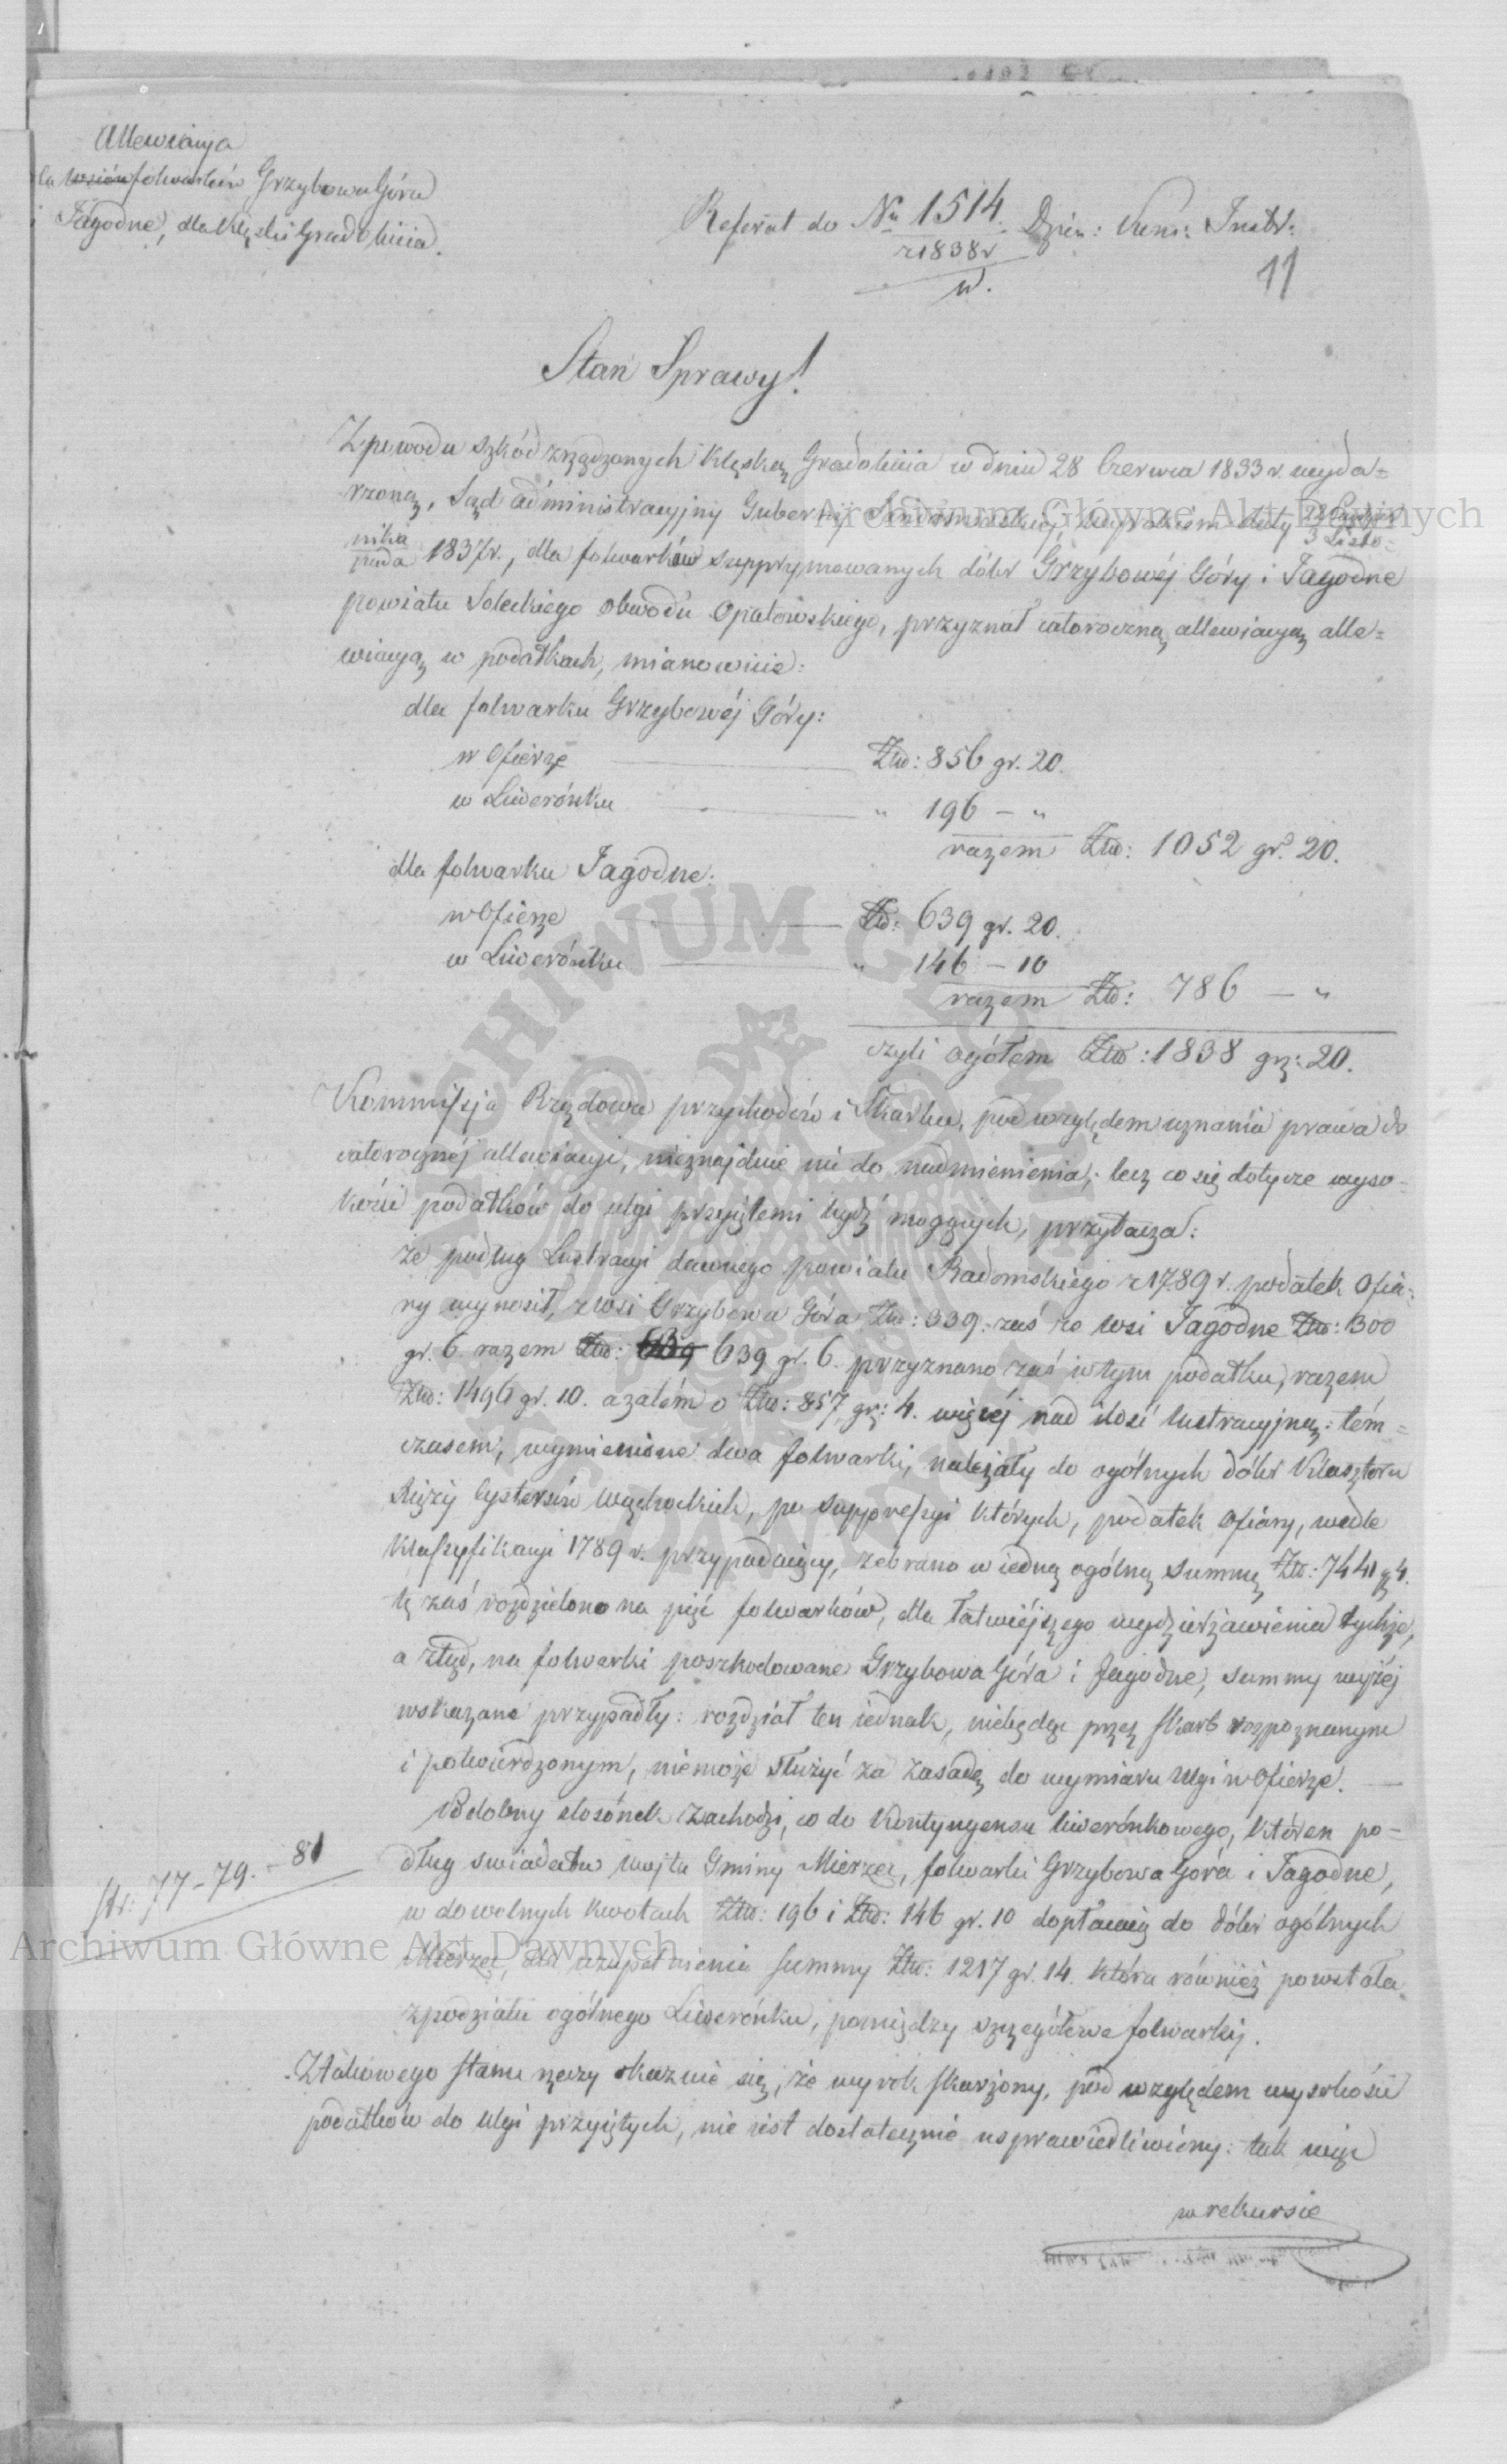 Allewiacya
la wsiów folwarków Grzybowa Góra
i Jagodne, dla klęski Gradobicia.
Referat do Nu 1514. Dzien: Kom: Instr:
z 1838 r
w.
11
Stan Sprawy!
Z powodu szkód zrządzonych klęską Gradobicia w dniu 28 Czerwca 1833 r. wyda=
rzoną, Sąd administracyjny Gubernij Sandomirskiej, wyrokiem daty 22 Paździer
3 Listo=
nika
pada 1837 r., dla folwarków supprymowanych dóbr Grzybowéj Góry i Jagodne
powiatu Soleckiego obwodu Opatowskiego, przyznał całoroczną allewiacyą alle=
wiacyą w podatkach, mianowicie:
dla folwarku Grzybowéj Góry:
w Ofierze Złw: 856 gr. 20.
w Liwerónku " 196 – "
razem Złw: 1052 gr. 20.
dla folwarku Jagodne.
w Ofierze Złw: 639 gr. 20.
w Liwerónku " 146 – 10
razem Złw: 786 – "
czyli ogółem Złw: 1838 gr: 20.
Kommissja Rządowa przychodów i Skarbu, pod względem uznania prawa do
całorocznéj allewiacyi, nieznajduie nic do nadmienienia; lecz co się dotycze wyso=
kości podatków do ulgi przyiętemi bydź mogących, przytacza:
że podług Lustracyi dawnego powiatu Radomskiego z 1789 r. podatek Ofia=
ry wynosił, z wsi Grzybowa Góra Złw: 339. zaś ze wsi Jagodne Złw: 300
gr. 6. razem Złw: 639 639 gr. 6. przyznano zaś w tym podatku, razem
Złw: 1496 gr. 10. a zatém o Złw: 857 gr: 4. więcéj nad ilość lustracyjną: tém=
czasem, wymienione dwa folwarki, należały do ogólnych dóbr Klasztoru
Xięży Cystersów Wąchockich, po suppressyi których, podatek Ofiary, wedle
Klassyfikacyi 1789 r. przypadaiący, zebrano w iedną ogólną summę Złw: 7441 g 4.
tę zaś rozdzielono na pięć folwarków, dla łatwiéjszego wydzierżawienia tychże,
a ztąd, na folwarki poszkodowane Grzybowa Góra i Jagodne, summy wyżéj
wskazane przypadły: rozdział ten iednak, niebędąc przez Skarb rozpoznanym
i potwierdzonym, niemoże służyć za zasadę do wymiaru ulgi w Ofierze. —
Podobny stosónek zachodzi, co do Kontyngensu liwerónkowego, któren po=
dług swiadectwa wójta Gminy Mierzec, folwarki Grzybowa Góra i Jagodne,
w dowolnych kwotach Złw: 196 i Złw: 146 gr. 10 dopłacaią do dóbr ogólnych
Mierzec, dla uzupełnienia summy Złw: 1217 gr. 14. która również powstała
z podziału ogólnego Liwerónku, pomiędzy szczegółowe folwarki.
str: 77–79. – 81
Z takowego stanu rzeczy okazuie się, że wyrok skarżony, pod względem wysokości
podatków do ulgi przyiętych, nie iest dostatecznie usprawiedliwiony: tak więc
w rekursie
Archiwum Główne Akt Dawnych
Archiwum Główne Akt Dawnych
ARCHIWUM GŁÓWNE AKT DAWNYCH